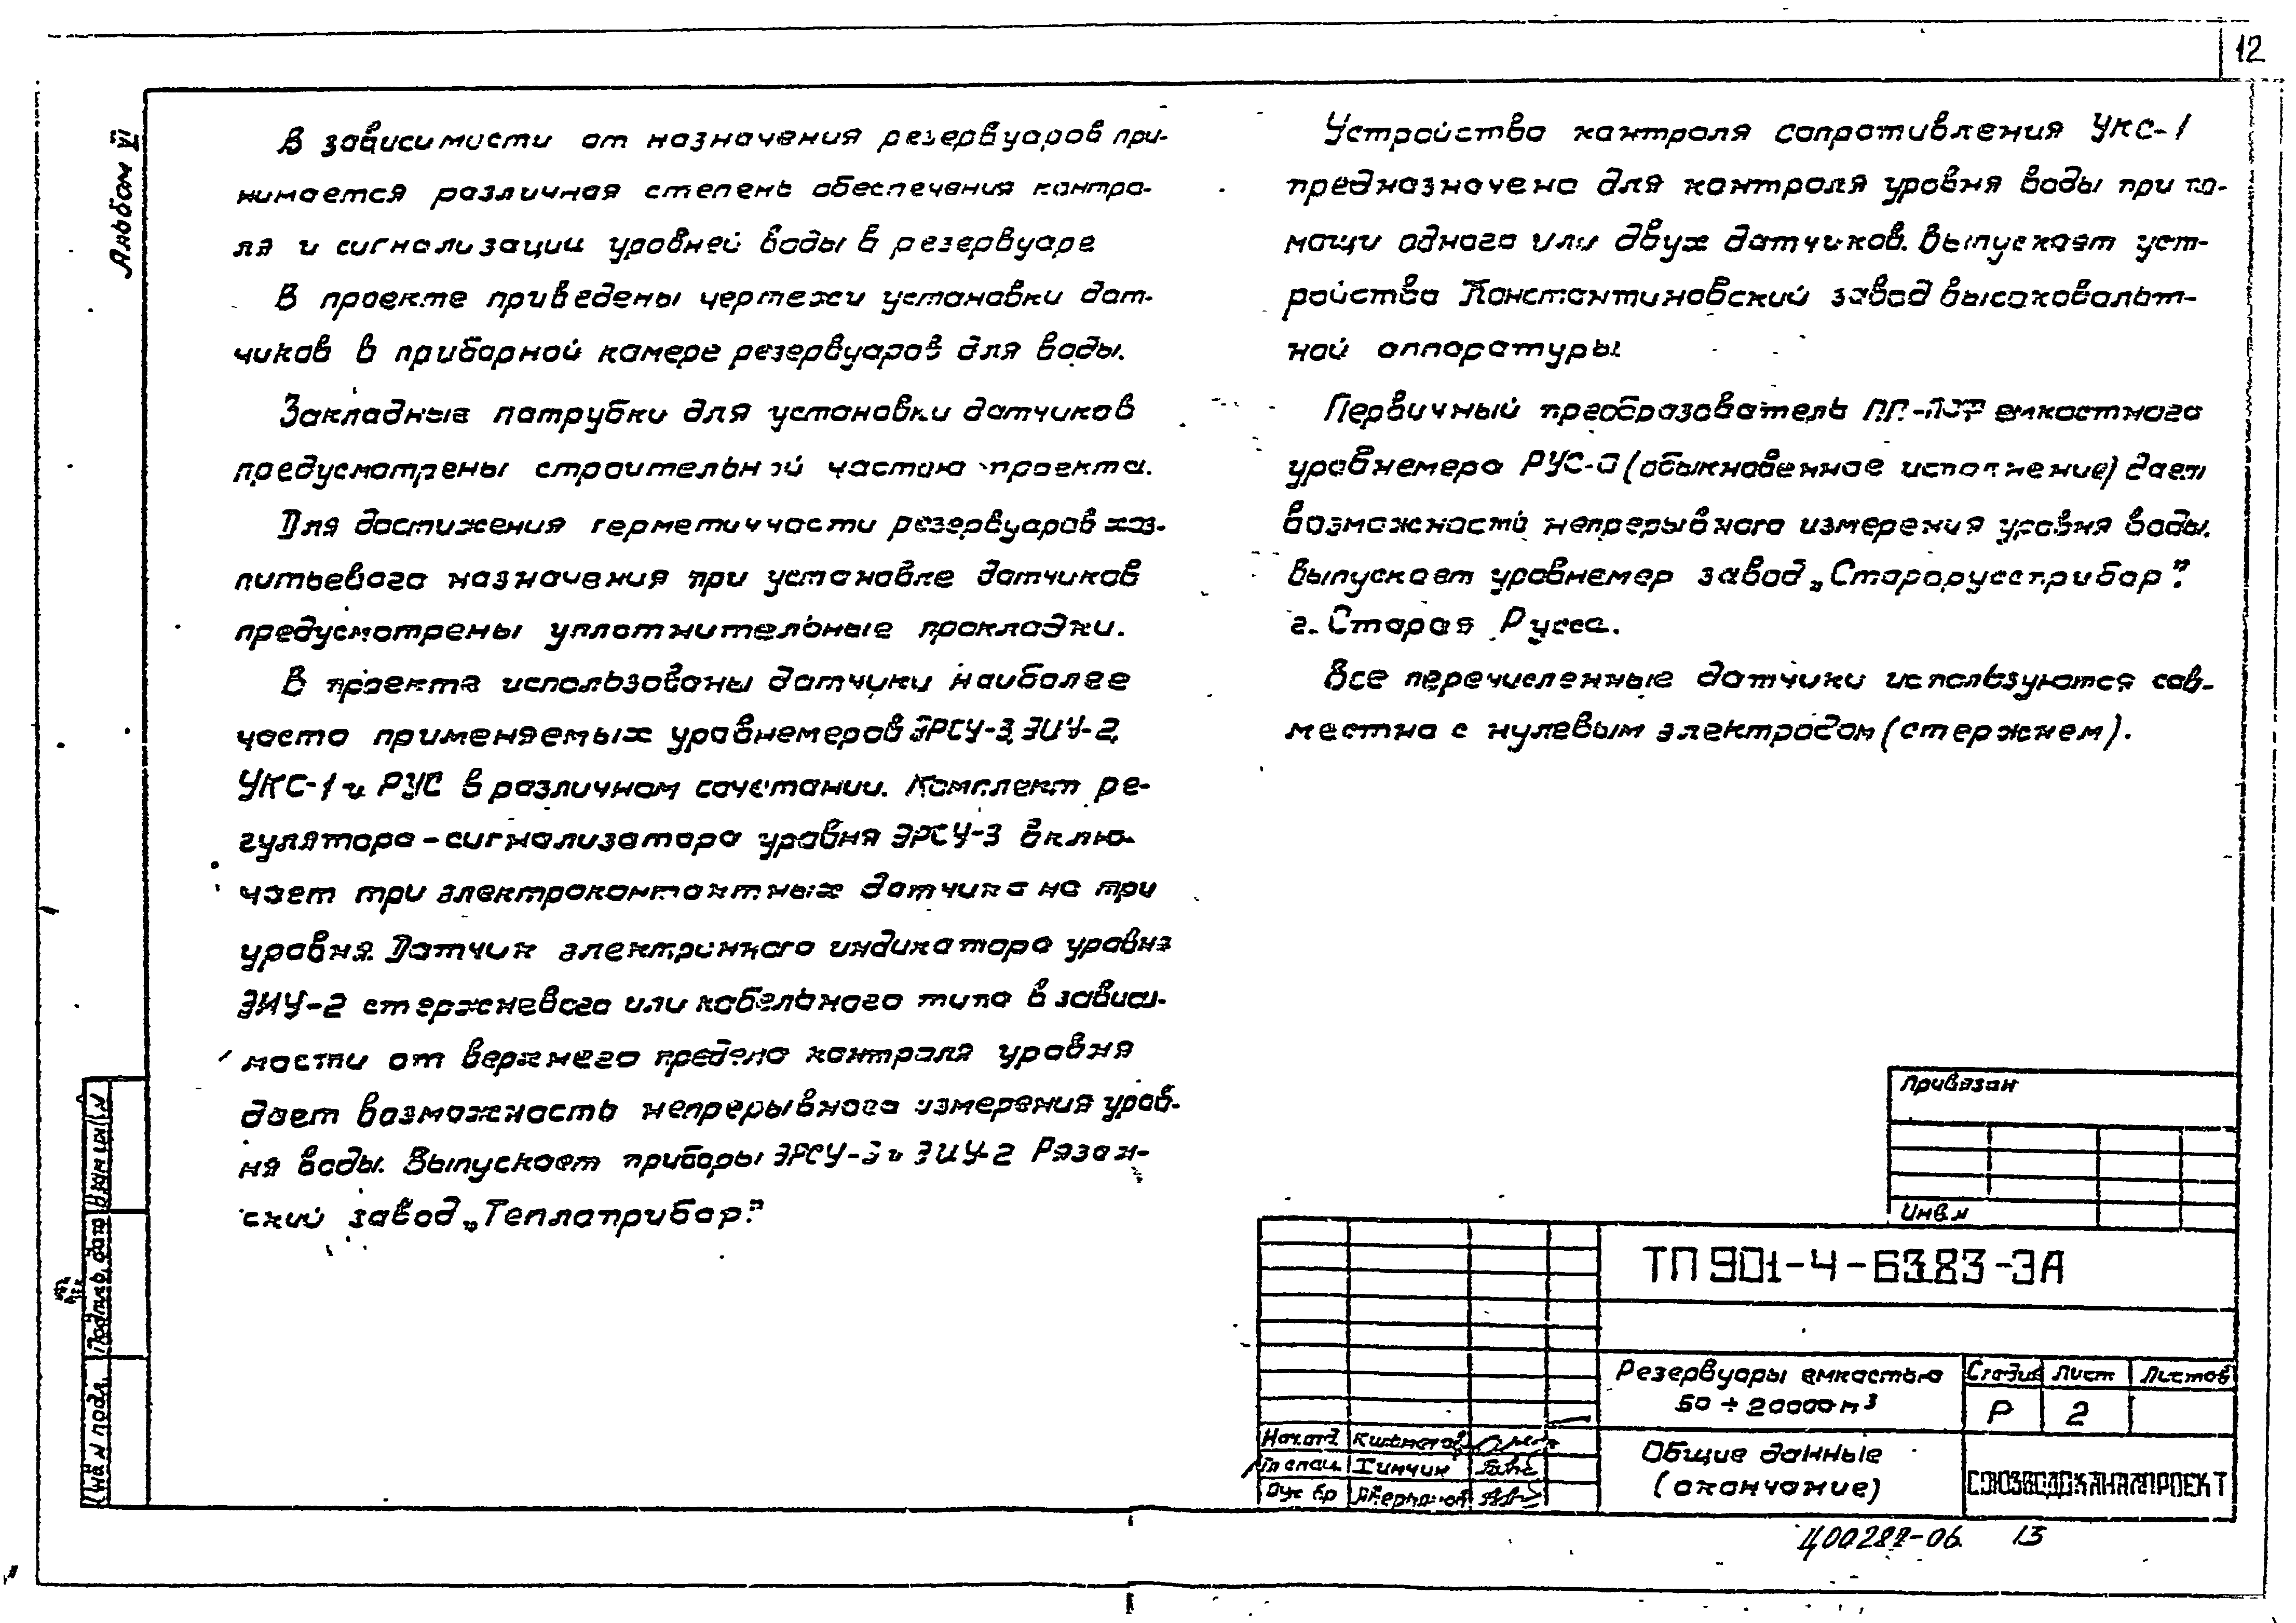 12
Альбом VI
В зависимости от назначения резервуаров при-
нимается различная степень обеспечения контро-
ля и сигнализации уровней воды в резервуаре
В проекте приведены чертежи установки дат-
чиков в приборной камере резервуаров для воды.
Закладные патрубки для установки датчиков
предусмотрены строительной частью проекта.
Для достижения герметичности резервуаров хоз-
питьевого назначения при установке датчиков
предусмотрены уплотнительные прокладки.
В проекте использованы датчики наиболее
часто применяемых уровнемеров ЭРСУ-3, ЭИУ-2,
УКС-1 и РУС в различном сочетании. Комплект ре-
гулятора-сигнализатора уровня ЭРСУ-3 вклю-
чает три электроконтактных датчика на три
уровня. Датчик электронного индикатора уровня
ЭИУ-2 стержневого или кабельного типа в зависи-
мости от верхнего предела контроля уровня
дает возможность непрерывного измерения уров-
ня воды. Выпускает приборы ЭРСУ-3 и ЭИУ-2 Рязан-
ский завод „Теплоприбор".
Устройство контроля сопротивления УКС-1
предназначено для контроля уровня воды при по-
мощи одного или двух датчиков. Выпускает уст-
ройства Константиновский завод высоковольт-
ной аппаратуры.
Первичный преобразователь емкостного
уровнемера РУС-О (обыкновенное исполнение) дает
возможность непрерывного измерения уровня воды.
Выпускает уровнемер завод „Старорусприбор".
г. Старая Русса.
Все перечисленные датчики используются сов-
местно с нулевым электродом (стержнем).
Привязан
Инв.N
ТП 901-4-63.83-ЭА
Резервуары емкостью
50 ÷ 20000 м³
Стадия Лист Листов
Р 2
Общие данные
(окончание)
СОЮЗВОДОКАНАЛПРОЕКТ
Нач.отд.
Гл спец. Хинчин
Рук бр
Взам инв N
Подпись дата
Инв N подл.
13